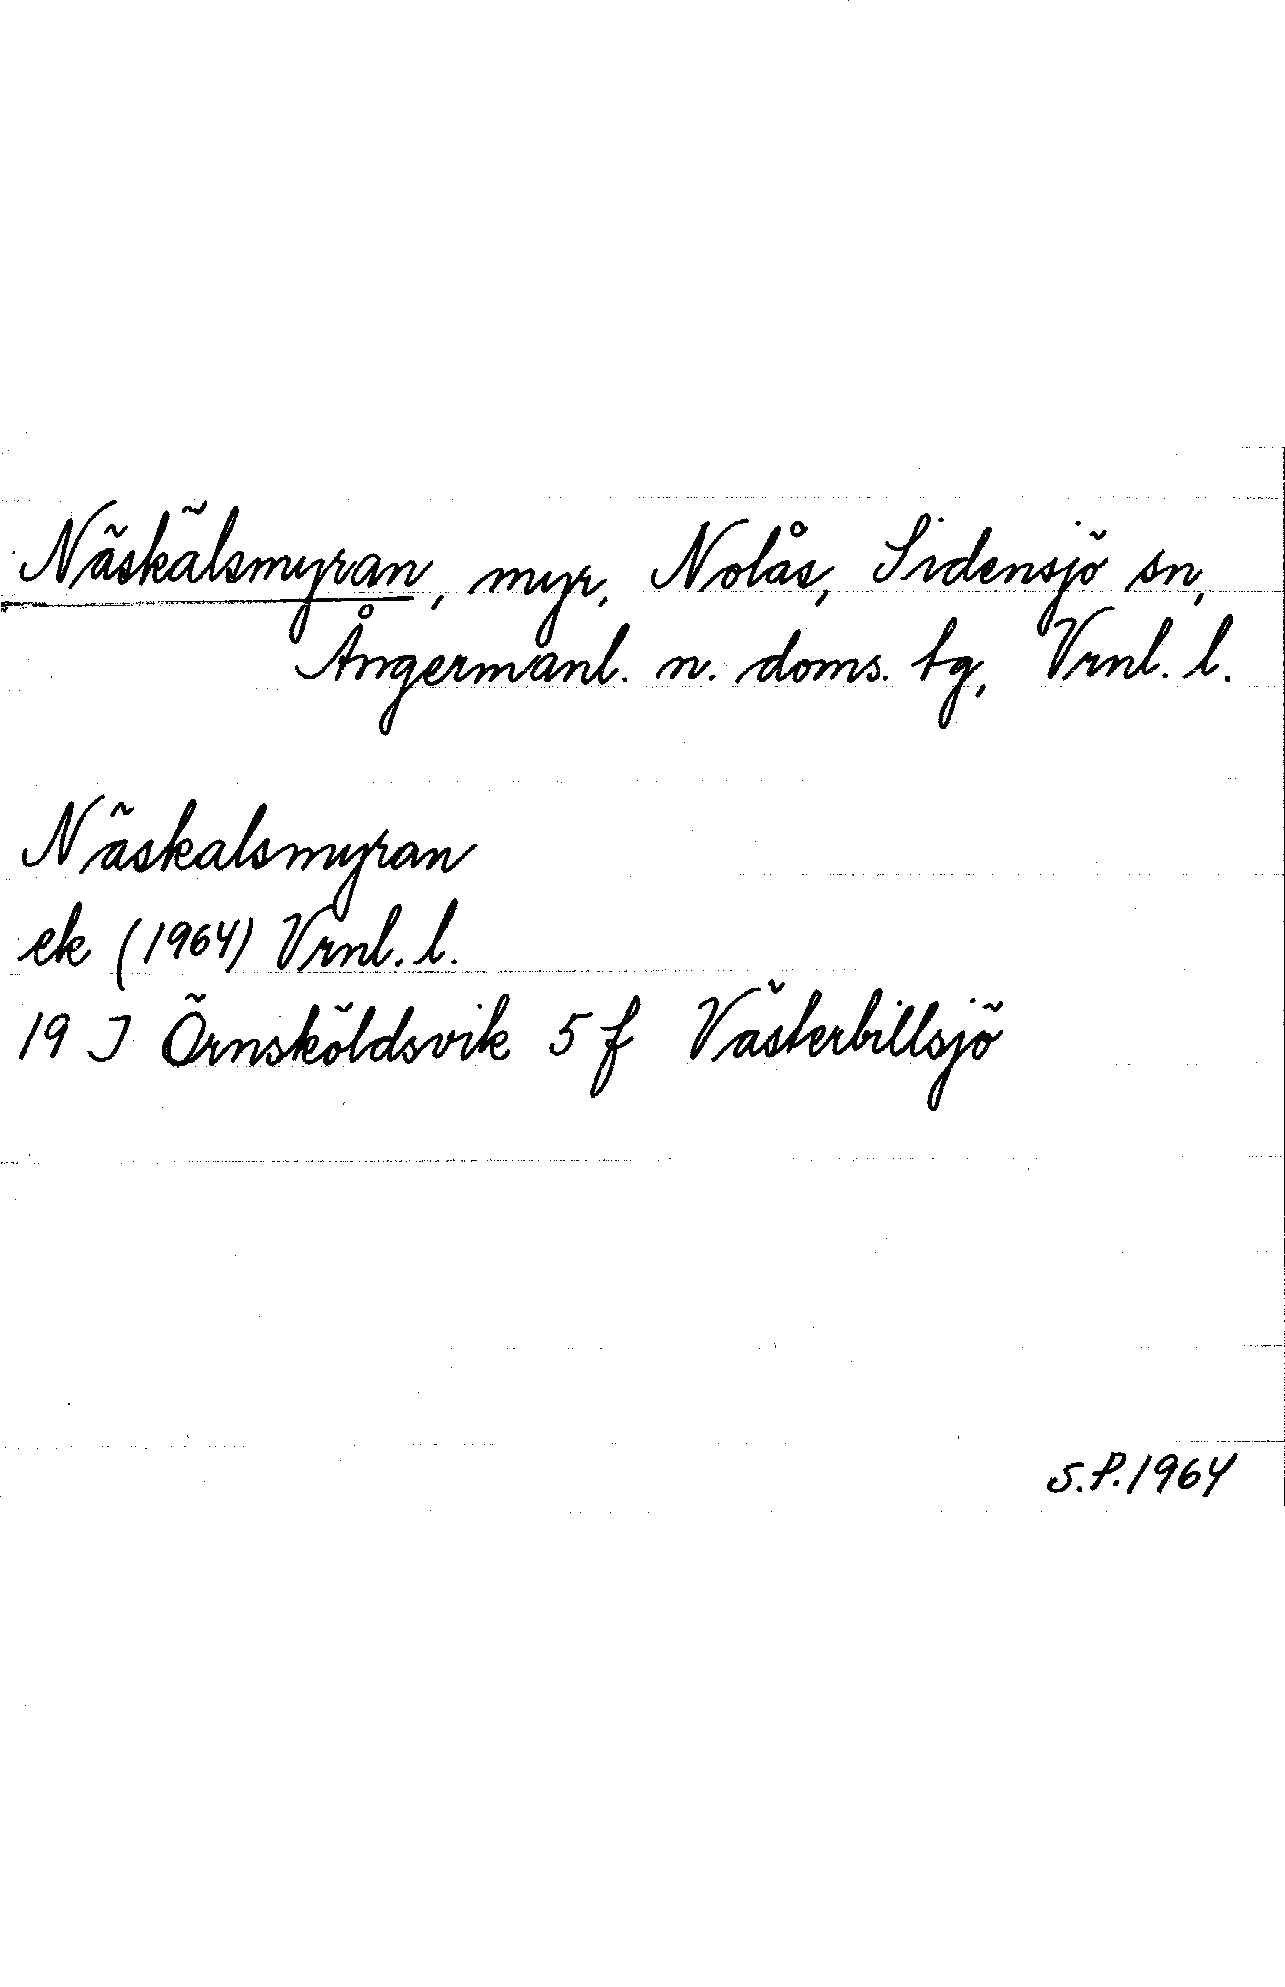 Näskälsmyran, myr, Nolås, Sidensjö sn,
Ångermanl. n. doms. tg, Vrnl. l.
Näskalsmyran
ek (1964) Vrnl. l.
19 J Örnsköldsvik 5 f Västerbillsjö
S.P. 1964